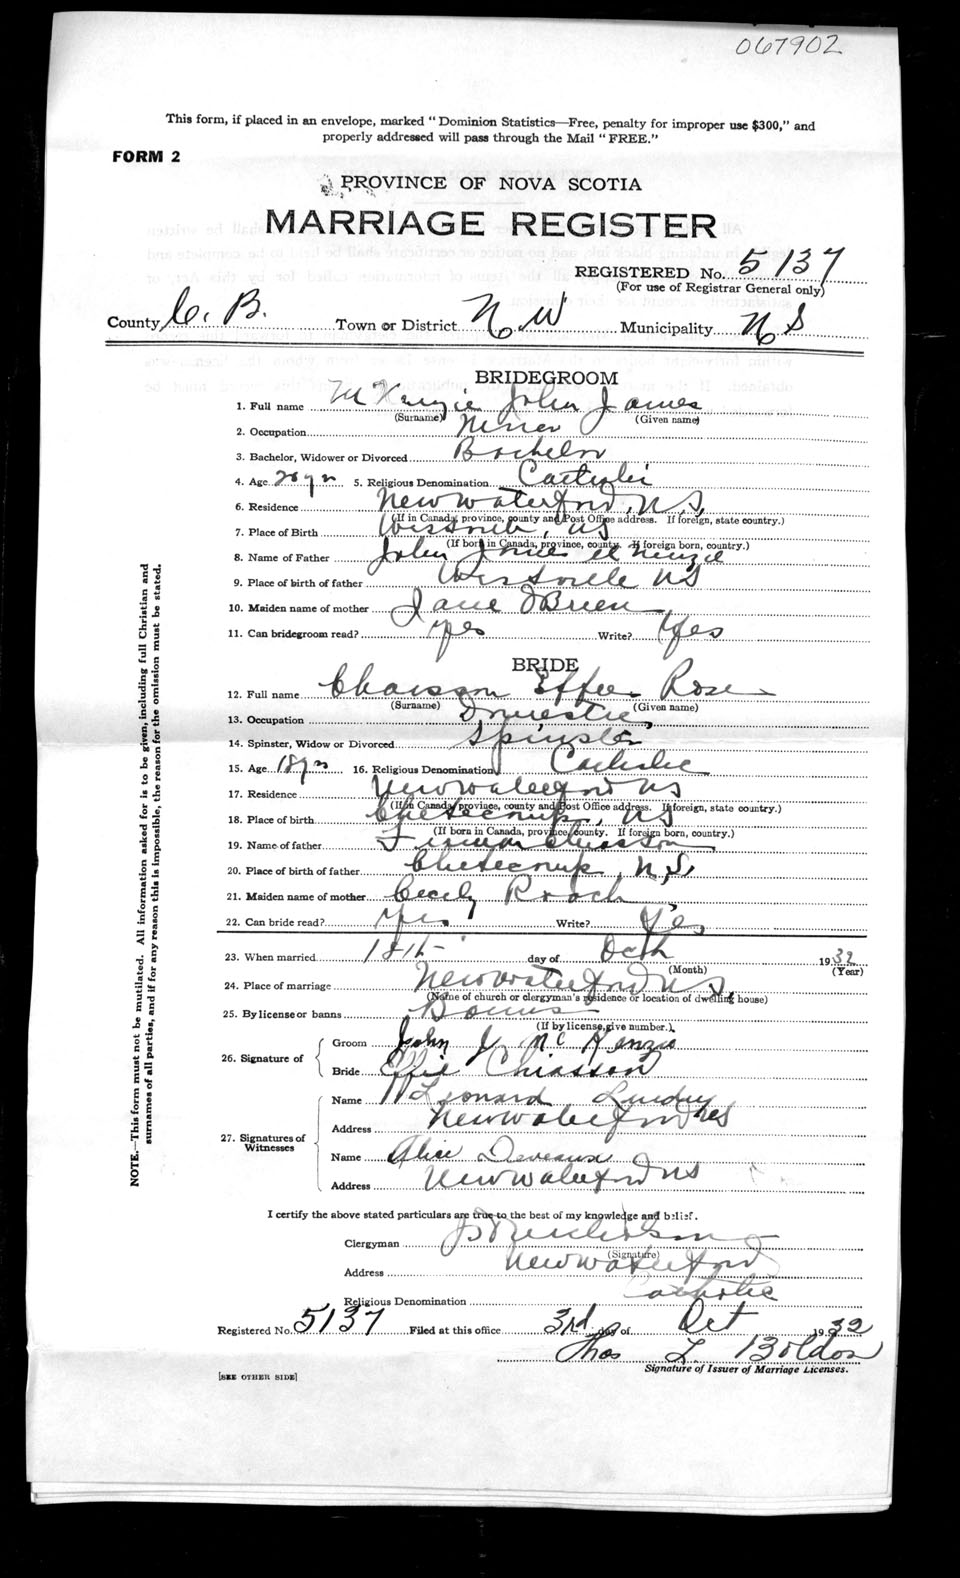 067902
This form, if placed in an envelope, marked " Dominion Statistics—Free, penalty for improper use $300," and
properly addressed will pass through the Mail " FREE."
FORM 2
PROVINCE OF NOVA SCOTIA
MARRIAGE REGISTER
REGISTERED No. 5137
(For use of Registrar General only)
County C. B. Town or District N W Municipality N S
BRIDEGROOM
1. Full name McKenzie John James
(Surname) (Given name)
2. Occupation Miner
3. Bachelor, Widower or Divorced Bachelor
4. Age 5. Religious Denomination Catholic
6. Residence New Waterford, N.S.
(If in Canada, province, county and Post Office address. If foreign, state country.)
7. Place of Birth Westville, NS
(If born in Canada, province, county. If foreign born, country.)
8. Name of Father John James McKenzie
9. Place of birth of father Westville NS
10. Maiden name of mother Jane O'Brien
11. Can bridegroom read? Yes Write? Yes
BRIDE
12. Full name Chaisson Effie Rose
(Surname) (Given name)
13. Occupation Domestic
14. Spinster, Widow or Divorced Spinster
15. Age 18 yrs 16. Religious Denomination Catholic
17. Residence New Waterford NS
(If in Canada, province, county and Post Office address. If foreign, state country.)
18. Place of birth Cheticamp, NS
(If born in Canada, province, county. If foreign born, country.)
19. Name of father Chiasson
20. Place of birth of father Cheticamp, N.S.
21. Maiden name of mother Cecily Roach
22. Can bride read? Yes Write? Yes
23. When married day of 1932
(Month) (Year)
24. Place of marriage New Waterford N.S.
(Name of church or clergyman's residence or location of dwelling house)
25. By license or banns Banns
(If by license, give number.)
26. Signature of
Groom John J. McKenzie
Bride Effie Chiasson
27. Signatures of Witnesses
Name Leonard
Address New Waterford NS
Name Alice Deveaux
Address New Waterford NS
I certify the above stated particulars are true to the best of my knowledge and belief.
Clergyman
(Signature)
Address New Waterford
Religious Denomination Catholic
Registered No. 5137 Filed at this office 3rd day of Oct 1932
Thos L Boldon
Signature of Issuer of Marriage Licenses.
[SEE OTHER SIDE]
NOTE.—This form must not be mutilated. All information asked for is to be given, including full Christian and
surnames of all parties, and if for any reason this is impossible, the reason for the omission must be stated.